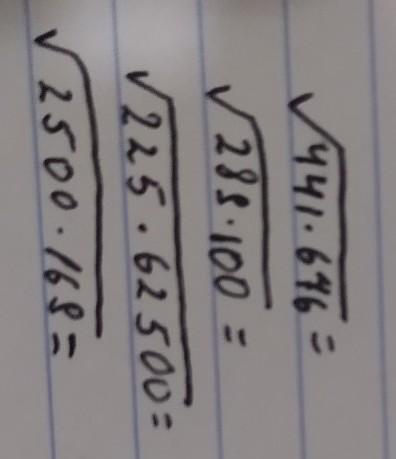 √441.676=
√288.100=
√225.62500=
√2500.168=